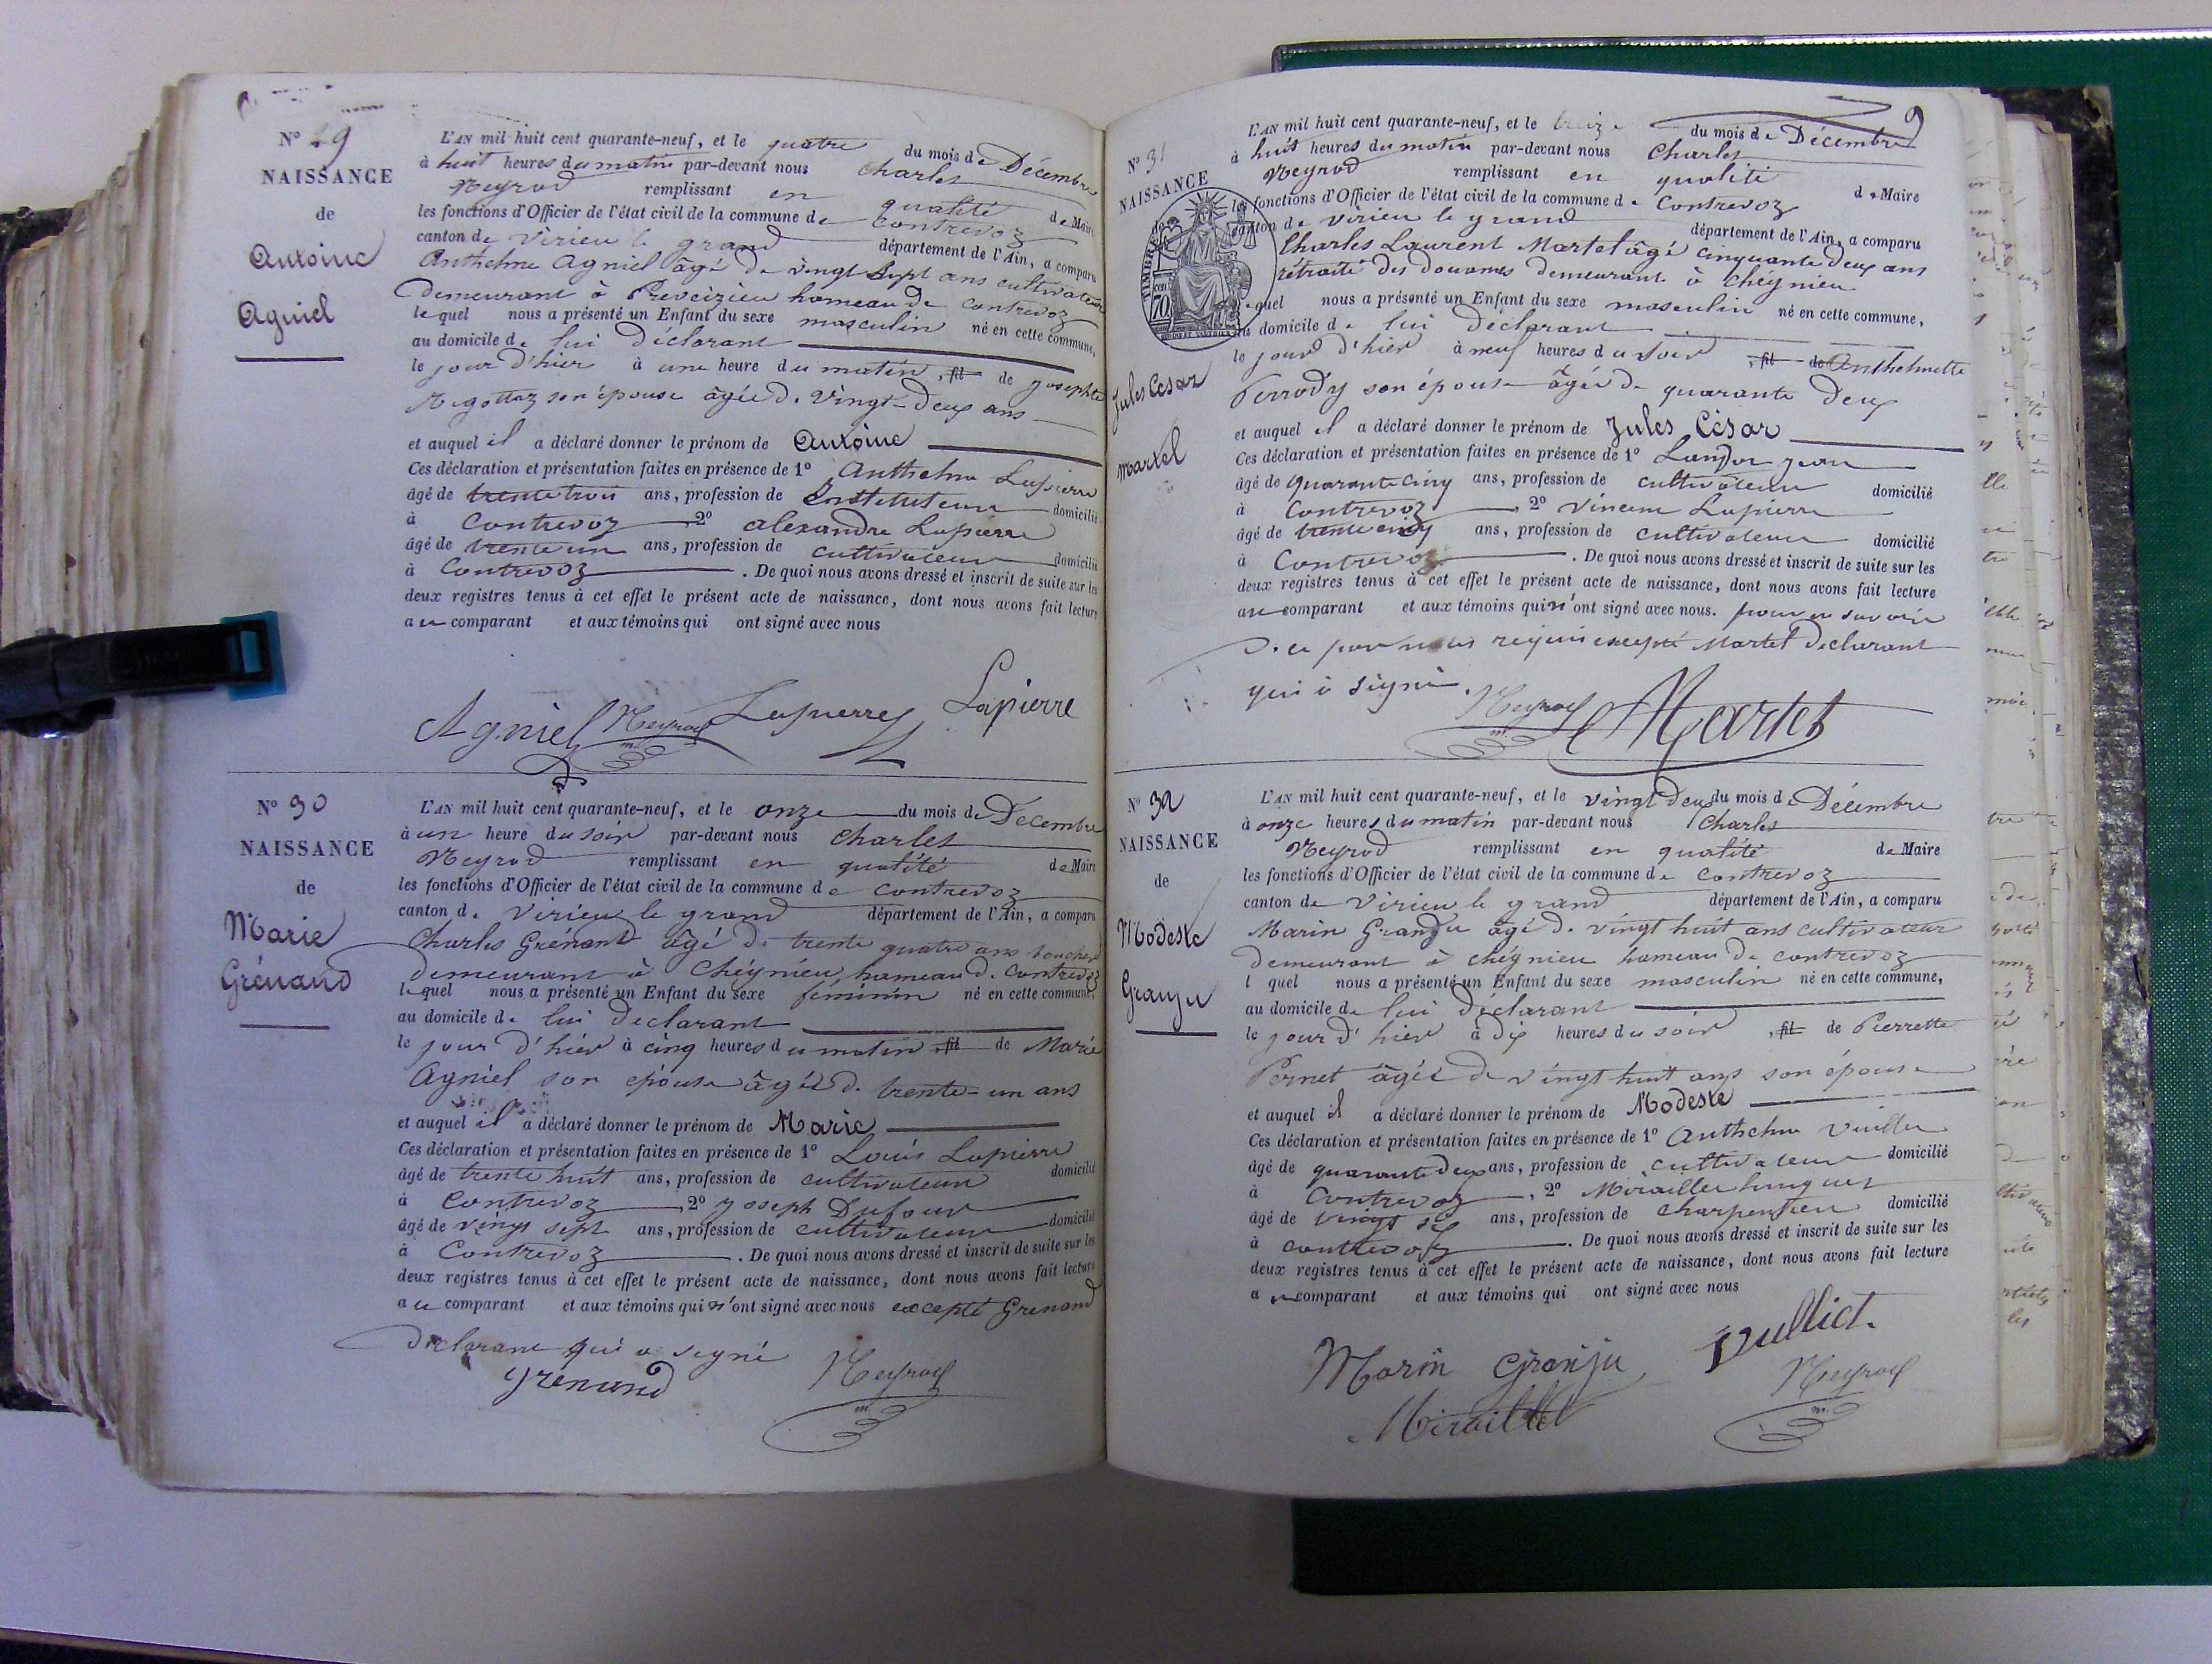 N° 29
NAISSANCE
de
Antoine
Agniel
L'AN mil huit cent quarante-neuf, et le quatre du mois de Décembre
à huit heures du matin par-devant nous Charles
Neyrod remplissant en qualité de Maire
les fonctions d'Officier de l'état civil de la commune de Contrevoz
canton de virieu le grand département de l'Ain, a comparu
Anthelme Agniel âgé de vingt Sept ans cultivateur
Demeurant à Preveizieu hameau de contrevoz
lequel nous a présenté un Enfant du sexe masculin né en cette commune,
au domicile de lui Déclarant
le jour d'hier à une heure du matin, fil de Josephte
Rigottaz son épouse âgée de vingt-Deux ans
et auquel il a déclaré donner le prénom de Antoine
Ces déclaration et présentation faites en présence de 1° Anthelme Lapierre
âgé de trente trois ans, profession de Instituteur domicilié
à Contrevoz 2° alexandre Lapierre
âgé de trente un ans, profession de cultivateur domicilié
à Contrevoz . De quoi nous avons dressé et inscrit de suite sur les
deux registres tenus à cet effet le présent acte de naissance, dont nous avons fait lecture
au comparant et aux témoins qui ont signé avec nous
Agniel Neyrod Lapierre Lapierre
m.
N° 30
NAISSANCE
de
Marie
Grénand
L'AN mil huit cent quarante-neuf, et le onze du mois de Décembre
à un heure du soir par-devant nous Charles
Neyrod remplissant en qualité de Maire
les fonctions d'Officier de l'état civil de la commune de contrevoz
canton de Virieu le grand département de l'Ain, a comparu
Charles Grénand âgé de trente quatre ans boucher
Demeurant à Cheÿnieu hameau de contrevoz
lequel nous a présenté un Enfant du sexe féminin né en cette commune,
au domicile de lui Declarant
le jour d'hier à cinq heures du matin, fil de Marie
Agniel son epouse âgée de trente-un ans
et auquel il a déclaré donner le prénom de Marie
Ces déclaration et présentation faites en présence de 1° Louis Lapierre
âgé de trente huit ans, profession de cultivateur domicilié
à Contrevoz, 2° Joseph Dufour
âgé de vingt sept ans, profession de cultivateur domicilié
à Contrevoz . De quoi nous avons dressé et inscrit de suite sur les
deux registres tenus à cet effet le présent acte de naissance, dont nous avons fait lecture
au comparant et aux témoins qui n'ont signé avec nous excepté Grenand
Declarant qui a signé
Grenand Neyrod
m.
9
N° 31
NAISSANCE
TIMBRE
70
Jules César
Martel
L'AN mil huit cent quarante-neuf, et le treize du mois de Décembre
à huit heures du matin par-devant nous Charles
Neyrod remplissant en qualité de Maire
les fonctions d'Officier de l'état civil de la commune de Contrevoz
canton de virieu le grand département de l'Ain, a comparu
Charles Laurent Martel âgé cinquante deux ans
retraité des douanes demeurant à Cheÿnieu
lequel nous a présenté un Enfant du sexe masculin né en cette commune,
au domicile de lui Déclarant
le jour d'hier à neuf heures du soir, fil de Anthelmette
Perrody son épouse âgée de quarante Deux
et auquel il a déclaré donner le prénom de Jules César
Ces déclaration et présentation faites en présence de 1° Jean
âgé de quarante cinq ans, profession de cultivateur domicilié
à Contrevoz, 2° Vincent Lapierre
âgé de trente cinq ans, profession de cultivateur domicilié
à Contrevoz . De quoi nous avons dressé et inscrit de suite sur les
deux registres tenus à cet effet le présent acte de naissance, dont nous avons fait lecture
au comparant et aux témoins qui n'ont signé avec nous. pour ne savoir
de ce par nous requis excepté Martel declarant
qui a signé.
Neyrod Martel
m.
N° 32
NAISSANCE
de
Modeste
Granju
L'AN mil huit cent quarante-neuf, et le vingt deux du mois de Décembre
à onze heures du matin par-devant nous Charles
Neyrod remplissant en qualité de Maire
les fonctions d'Officier de l'état civil de la commune de contrevoz
canton de Virieu le grand département de l'Ain, a comparu
Marin Granju âgé de vingt huit ans cultivateur
Demeurant à chéÿnieu hameau de contrevoz
l quel nous a présenté un Enfant du sexe masculin né en cette commune,
au domicile de lui Déclarant
le jour d'hier à dix heures du soir, fil de Pierrette
Pernet âgée de vingt huit ans son épouse
et auquel il a déclaré donner le prénom de Modeste
Ces déclaration et présentation faites en présence de 1° Anthelme
âgé de quarante deux ans, profession de cultivateur domicilié
à Contrevoz, 2° Miraillet
âgé de vingt six ans, profession de charpentier domicilié
à contrevoz . De quoi nous avons dressé et inscrit de suite sur les
deux registres tenus à cet effet le présent acte de naissance, dont nous avons fait lecture
au comparant et aux témoins qui ont signé avec nous
Marin Granju Vulliet.
Miraillet Neyrod
m.